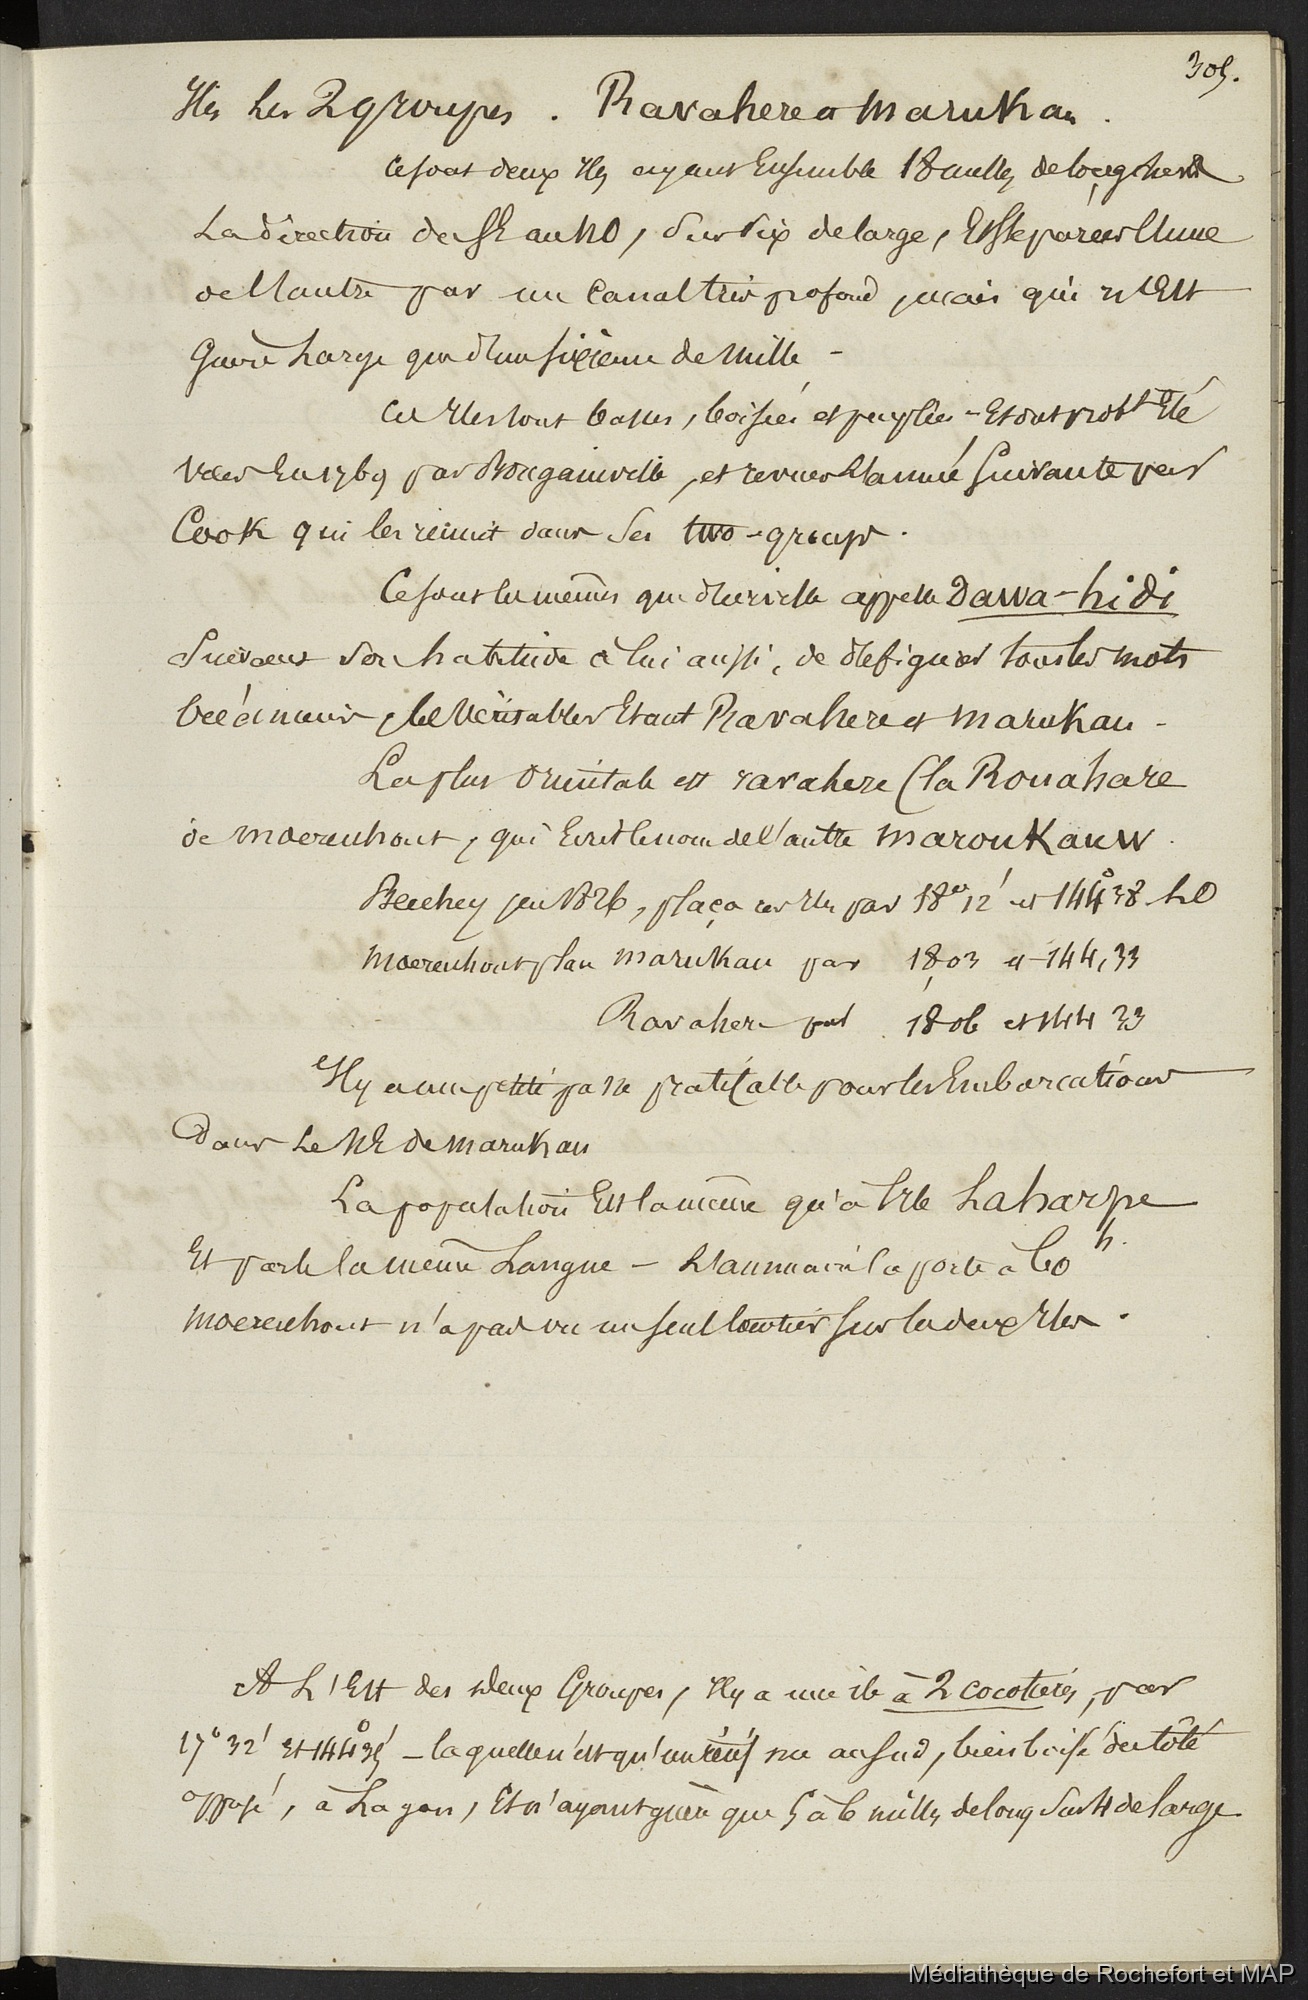 305.
Iles les 2 groupes. Ravahere et Marukau.
Ce sont deux Iles ayant Ensemble 18 milles de long dans
La direction du SE au NO, sur six de large, Et séparées l'une
de l'autre par un Canal très profond, mais qui n'Est
Guère Large que d'un sixième de Mille -
Ces Iles sont basses, boisées et peuplées - Et ont probt Eté
vues En 1769 par Bougainville, et revues l'année suivante par
Cook qui les réunit dans ses two-groups.
Ce sont les mêmes que d'Urville appelle Dawa-hidi
suivant son habitude à lui aussi, de défigurer tous les mots
océaniens, les véritables Etant Ravahere et Marukau -
La plus orientale est ravahere (la Rouahare
de Moerenhout, qui Ecrit le nom de l'autre Maroukauw.
Beechey, en 1826, plaça ces Iles par 18° 12' et 144° 38
Moerenhout place Marukau par 18,03 et 144,33
Ravahere par 18 06 et 144 33
Il y a une petite passe praticable pour les Embarcations
Dans Le NE de Marukau
La population Est la même qu'à l'Ile Laharpe
Et parle la même Langue - L'annuaire la porte à 60 h.
Moerenhout n'a pas vu un seul cocotier sur les deux Iles.
A L'Est des deux Groupes, Il y a une île à 2 cocotiers, par
17° 32' Et 144° 35' - laquelle n'est qu'un récif nu au sud, bien boisé du côté
opposé, à Lagon, Et n'ayant guère que 5 à 6 milles de long sur 4 de large
Médiathèque de Rochefort et MAP